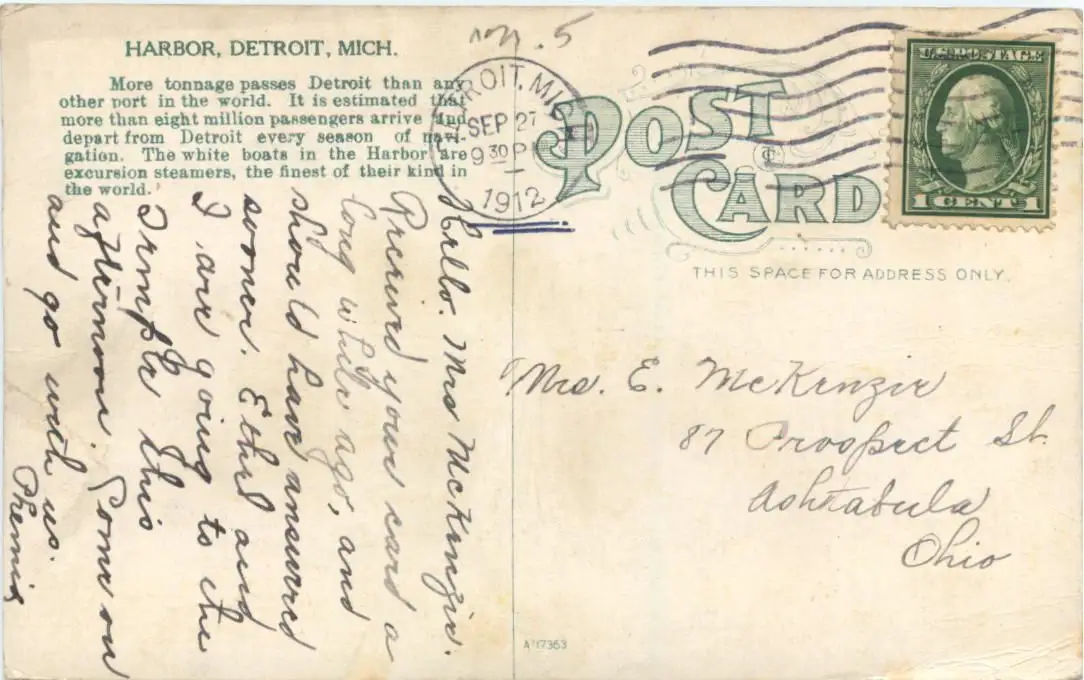 HARBOR, DETROIT, MICH.
More tonnage passes Detroit than any
other port in the world. It is estimated that
more than eight million passengers arrive and
depart from Detroit every season of navi-
gation. The white boats in the Harbor are
excursion steamers, the finest of their kind in
the world.
DETROIT, MICH.
SEP 27
9 30 P
1912
POST
CARD
U.S. POSTAGE
1 CENT 1
THIS SPACE FOR ADDRESS ONLY.
Hello. Mrs McKenzie.
Received your card a
long while ago, and
should have answered
sooner. Ethel and
I are going to the
Temple this
afternoon. Come on
and go with us.
Mrs. E. McKenzie
87 Prospect St.
Ashtabula
Ohio
A 17363